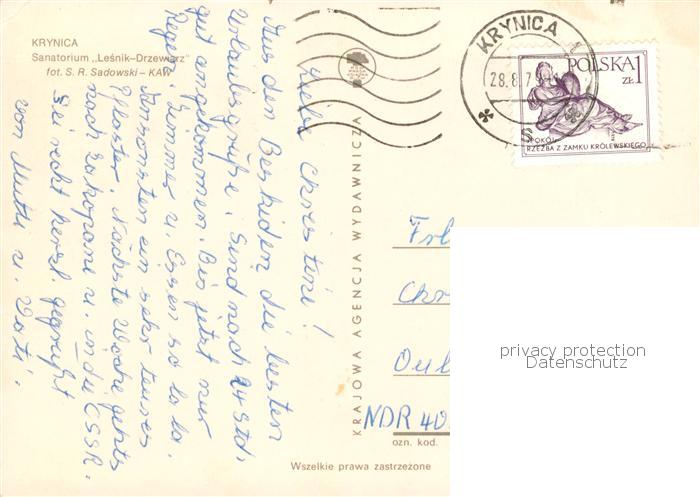 KRYNICA
Sanatorium „Leśnik-Drzewiarz"
fot. S. R. Sadowski – KAW
Liebe Christine!
Aus den Beskiden die besten
Urlaubsgrüße. Sind nach 24 Std.
gut angekommen. Bis jetzt nur
Regen. Zimmer u. Essen so la la.
Ansonsten ein sehr teures
Pflaster. Nächste Woche gehts
nach Zakopane u. in die CSSR.
Sei recht herzl. gegrüßt
von Mutti u. Vati.
KRAJOWA AGENCJA WYDAWNICZA
KRYNICA
28.8.7
POLSKA 1
ZŁ
SPOKÓJ
RZEŹBA Z ZAMKU KRÓLEWSKIEGO
Frl
Chr
Oul
NDR 40
ozn. kod.
Wszelkie prawa zastrzeżone
privacy protection
Datenschutz